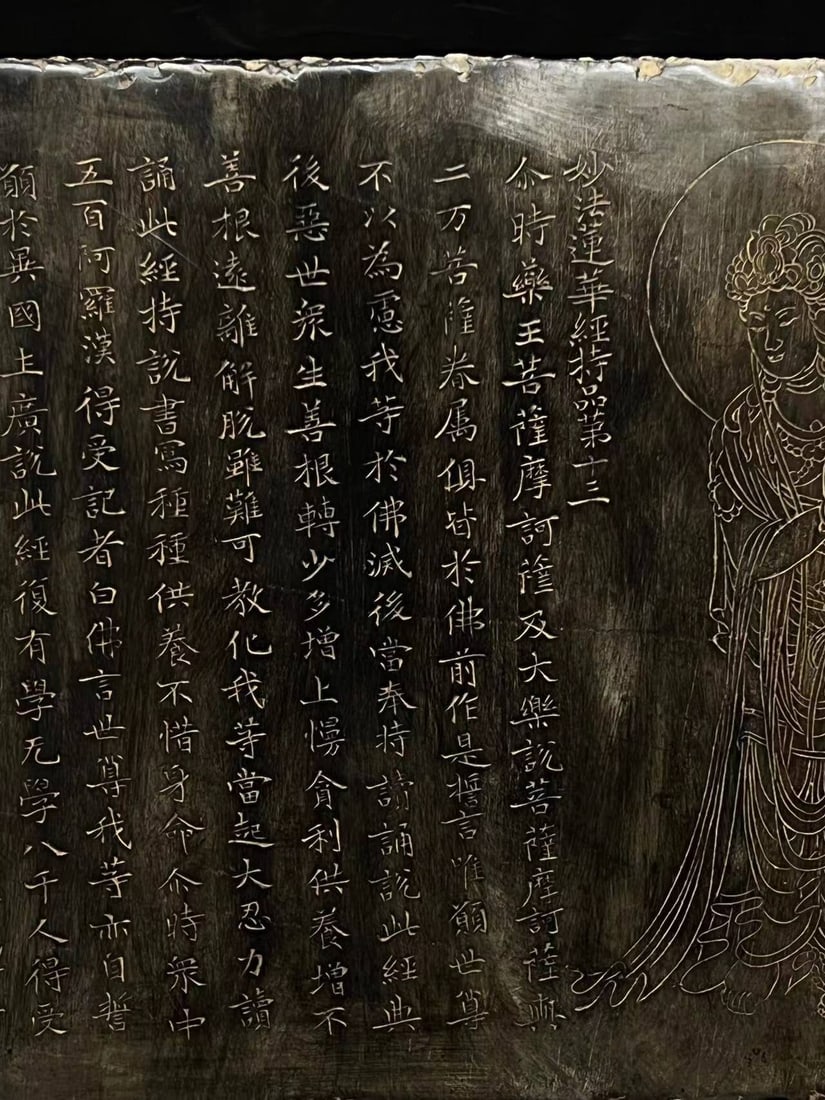 妙法蓮華經持品第十三
尒時藥王菩薩摩訶薩及大樂說菩薩摩訶薩與
二万菩薩眷属俱皆於佛前作是誓言唯願世尊
不以為慮我等於佛滅後當奉持讀誦說此經典
後惡世眾生善根轉少多增上慢貪利供養增不
善根遠離解脫雖難可教化我等當起大忍力讀
誦此經持說書寫種種供養不惜身命尒時眾中
五百阿羅漢得受記者白佛言世尊我等亦自誓
願於異國土廣說此經復有學无學八千人得受